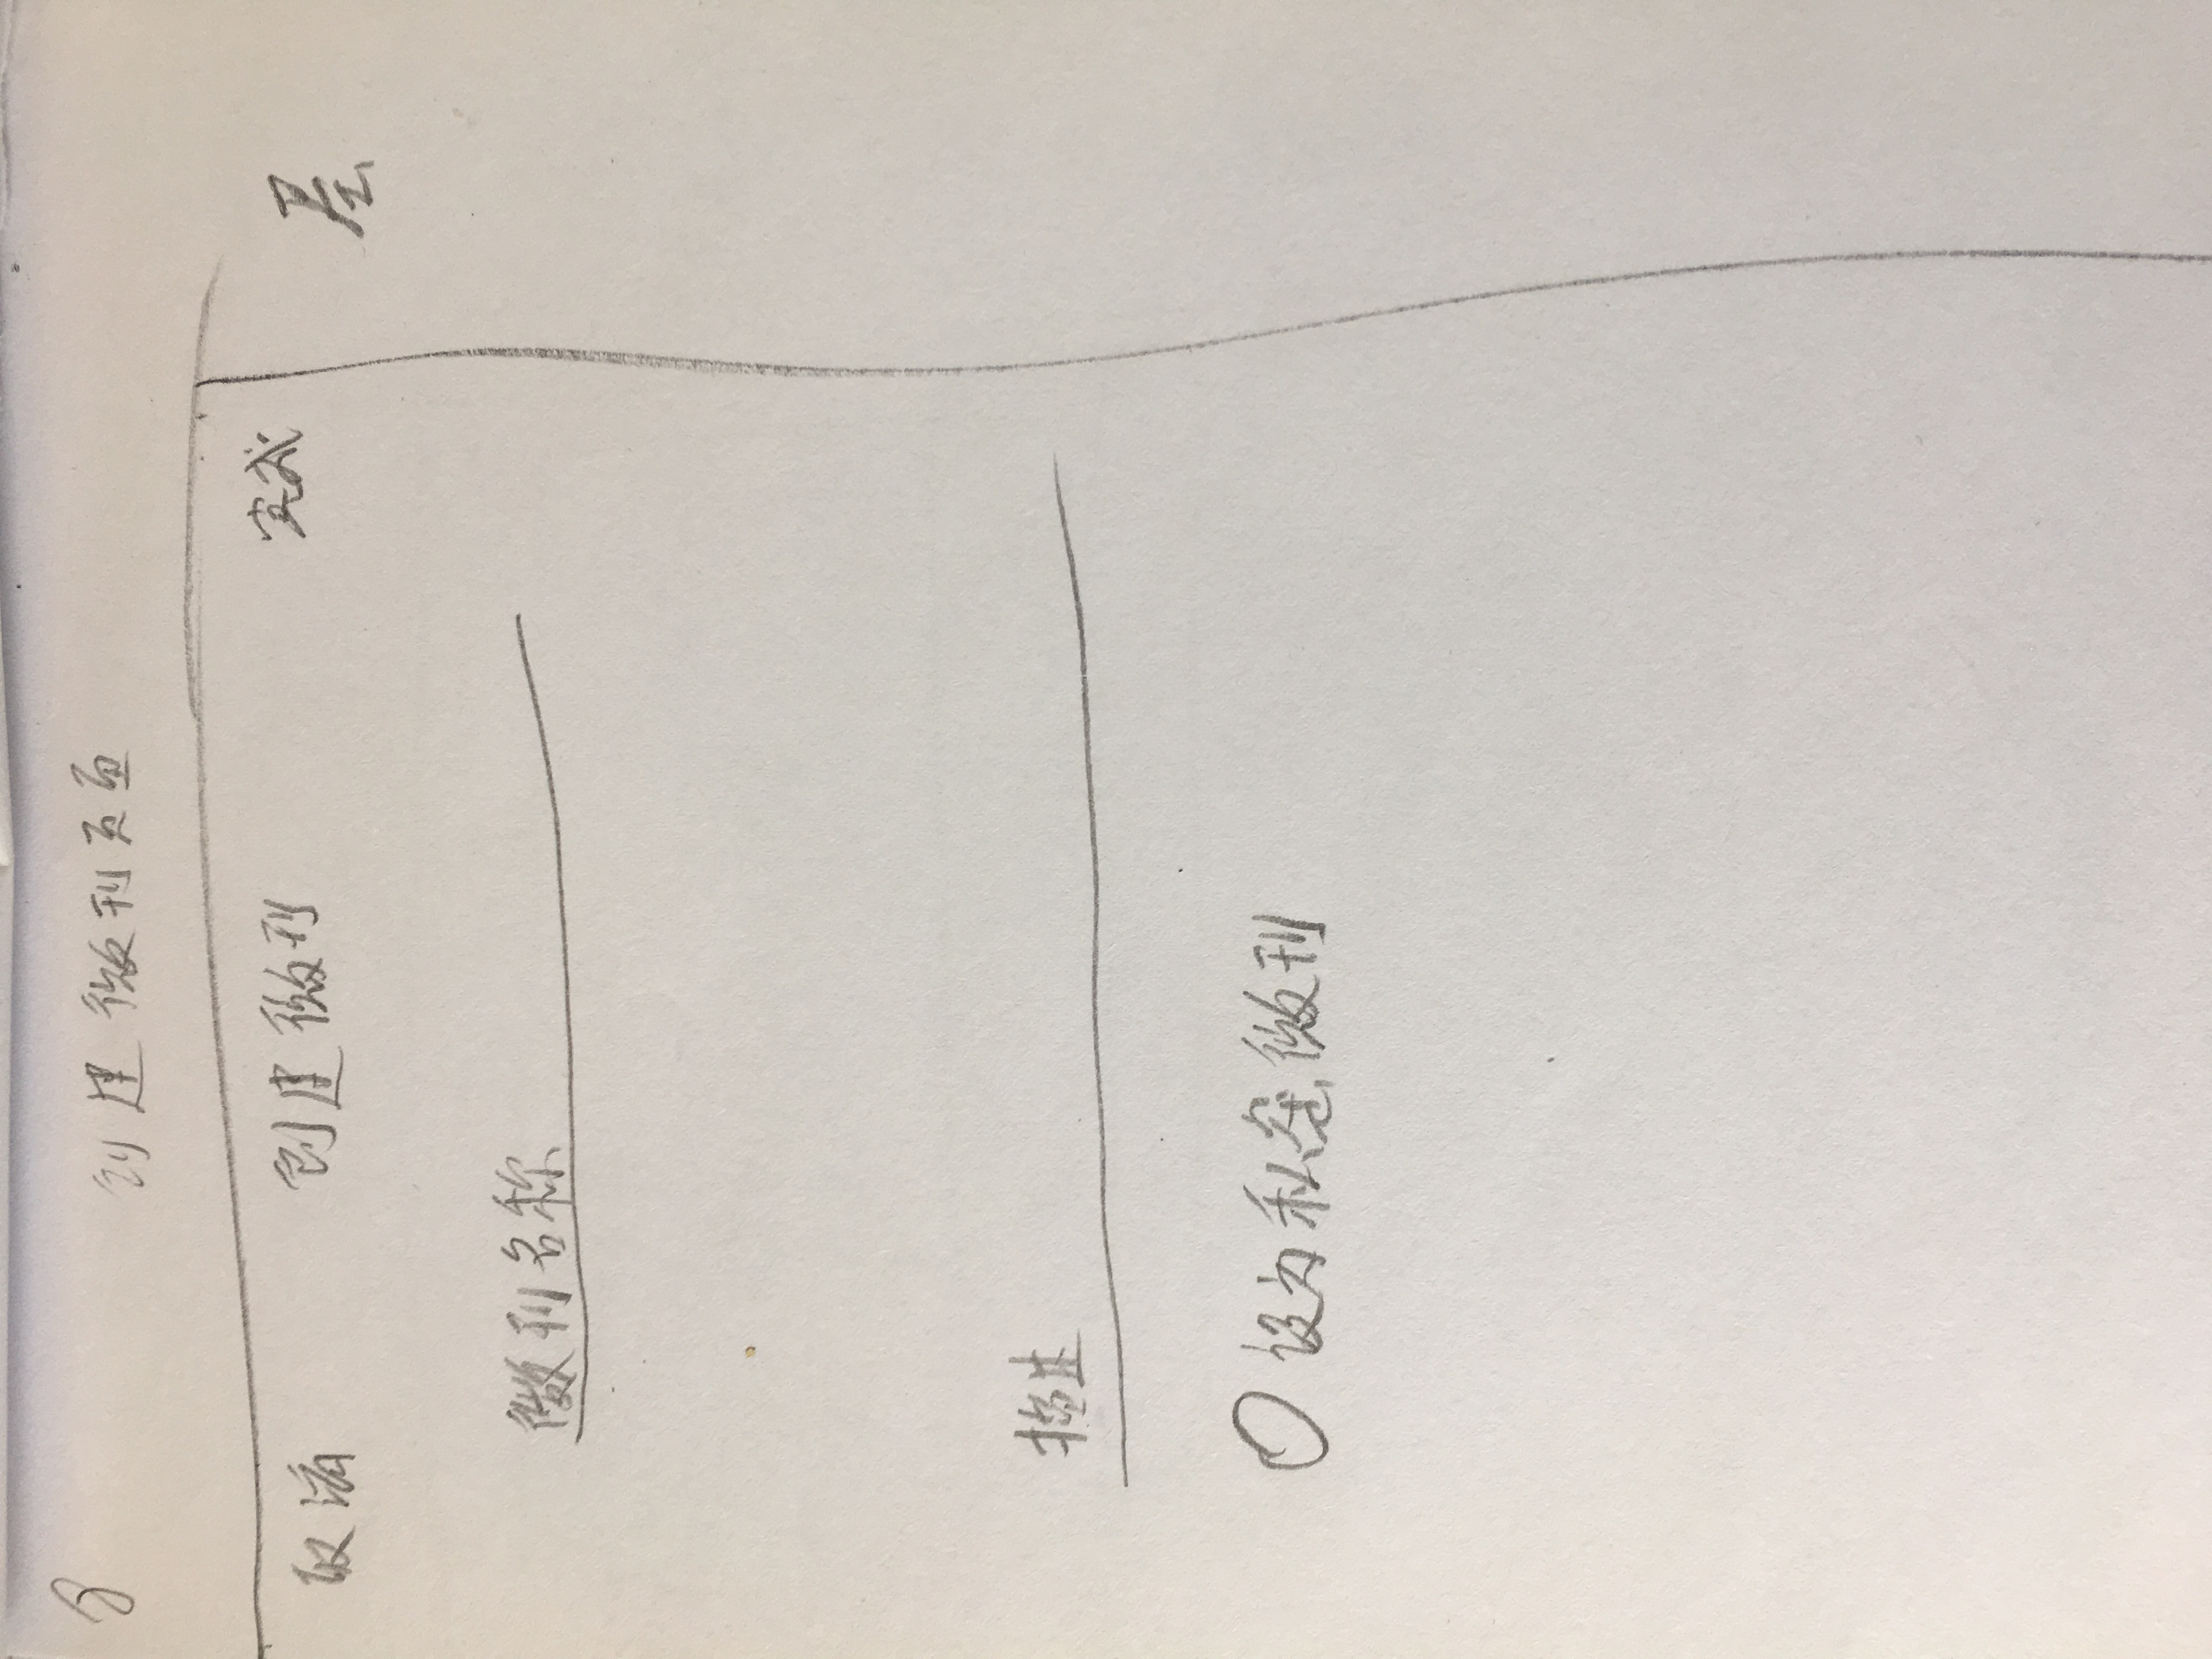 8
创建微刊页面
取消 创建微刊 完成 层
微刊名称
描述
设为私密微刊